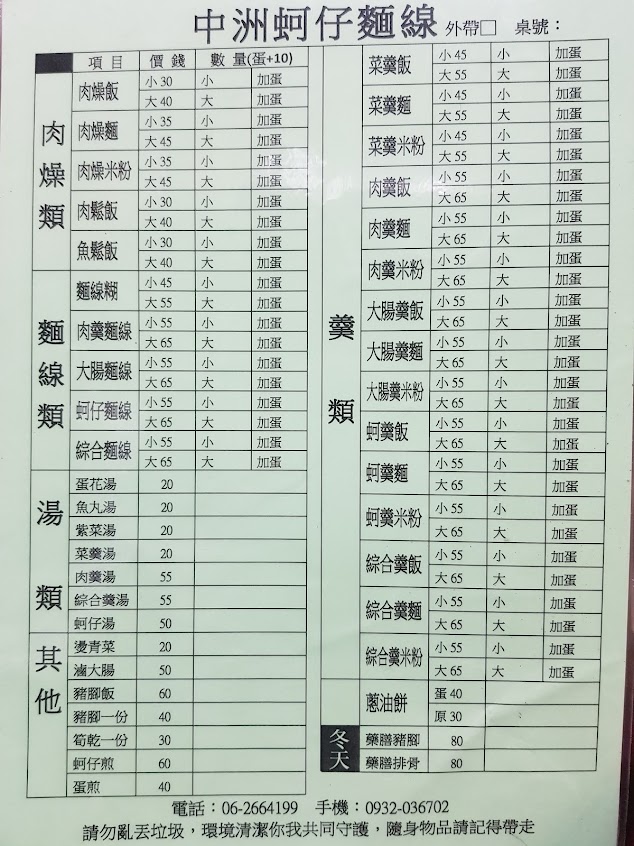 中洲蚵仔麵線 外帶□ 桌號：
項目 價錢 數量(蛋+10)
肉燥類
肉燥飯 小30 小 加蛋
大40 大 加蛋
肉燥麵 小35 小 加蛋
大45 大 加蛋
肉燥米粉 小35 小 加蛋
大45 大 加蛋
肉鬆飯 小30 小 加蛋
大40 大 加蛋
魚鬆飯 小30 小 加蛋
大40 大 加蛋
麵線類
麵線糊 小45 小 加蛋
大55 大 加蛋
肉羹麵線 小55 小 加蛋
大65 大 加蛋
大腸麵線 小55 小 加蛋
大65 大 加蛋
蚵仔麵線 小55 小 加蛋
大65 大 加蛋
綜合麵線 小55 小 加蛋
大65 大 加蛋
湯類
蛋花湯 20
魚丸湯 20
紫菜湯 20
菜羹湯 20
肉羹湯 55
綜合羹湯 55
蚵仔湯 50
其他
燙青菜 20
滷大腸 50
豬腳飯 60
豬腳一份 40
筍乾一份 30
蚵仔煎 60
蛋煎 40
羹類
菜羹飯 小45 小 加蛋
大55 大 加蛋
菜羹麵 小45 小 加蛋
大55 大 加蛋
菜羹米粉 小45 小 加蛋
大55 大 加蛋
肉羹飯 小55 小 加蛋
大65 大 加蛋
肉羹麵 小55 小 加蛋
大65 大 加蛋
肉羹米粉 小55 小 加蛋
大65 大 加蛋
大腸羹飯 小55 小 加蛋
大65 大 加蛋
大腸羹麵 小55 小 加蛋
大65 大 加蛋
大腸羹米粉 小55 小 加蛋
大65 大 加蛋
蚵羹飯 小55 小 加蛋
大65 大 加蛋
蚵羹麵 小55 小 加蛋
大65 大 加蛋
蚵羹米粉 小55 小 加蛋
大65 大 加蛋
綜合羹飯 小55 小 加蛋
大65 大 加蛋
綜合羹麵 小55 小 加蛋
大65 大 加蛋
綜合羹米粉 小55 小 加蛋
大65 大 加蛋
蔥油餅 蛋40
原30
冬天
藥膳豬腳 80
藥膳排骨 80
電話：06-2664199 手機：0932-036702
請勿亂丟垃圾，環境清潔你我共同守護，隨身物品請記得帶走